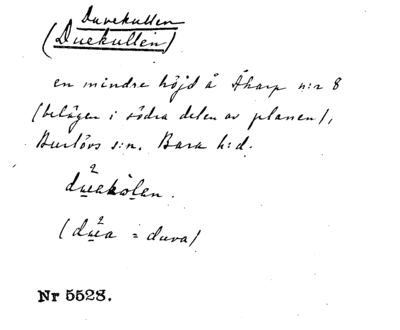 Duvekullen
(Duekullen)
en mindre höjd å Åkarp n:r 8
(belägen i södra delen av planen),
Burlövs s:n. Bara h:d.
du²eakölen.
(du²a = duva)
Nr 5528.